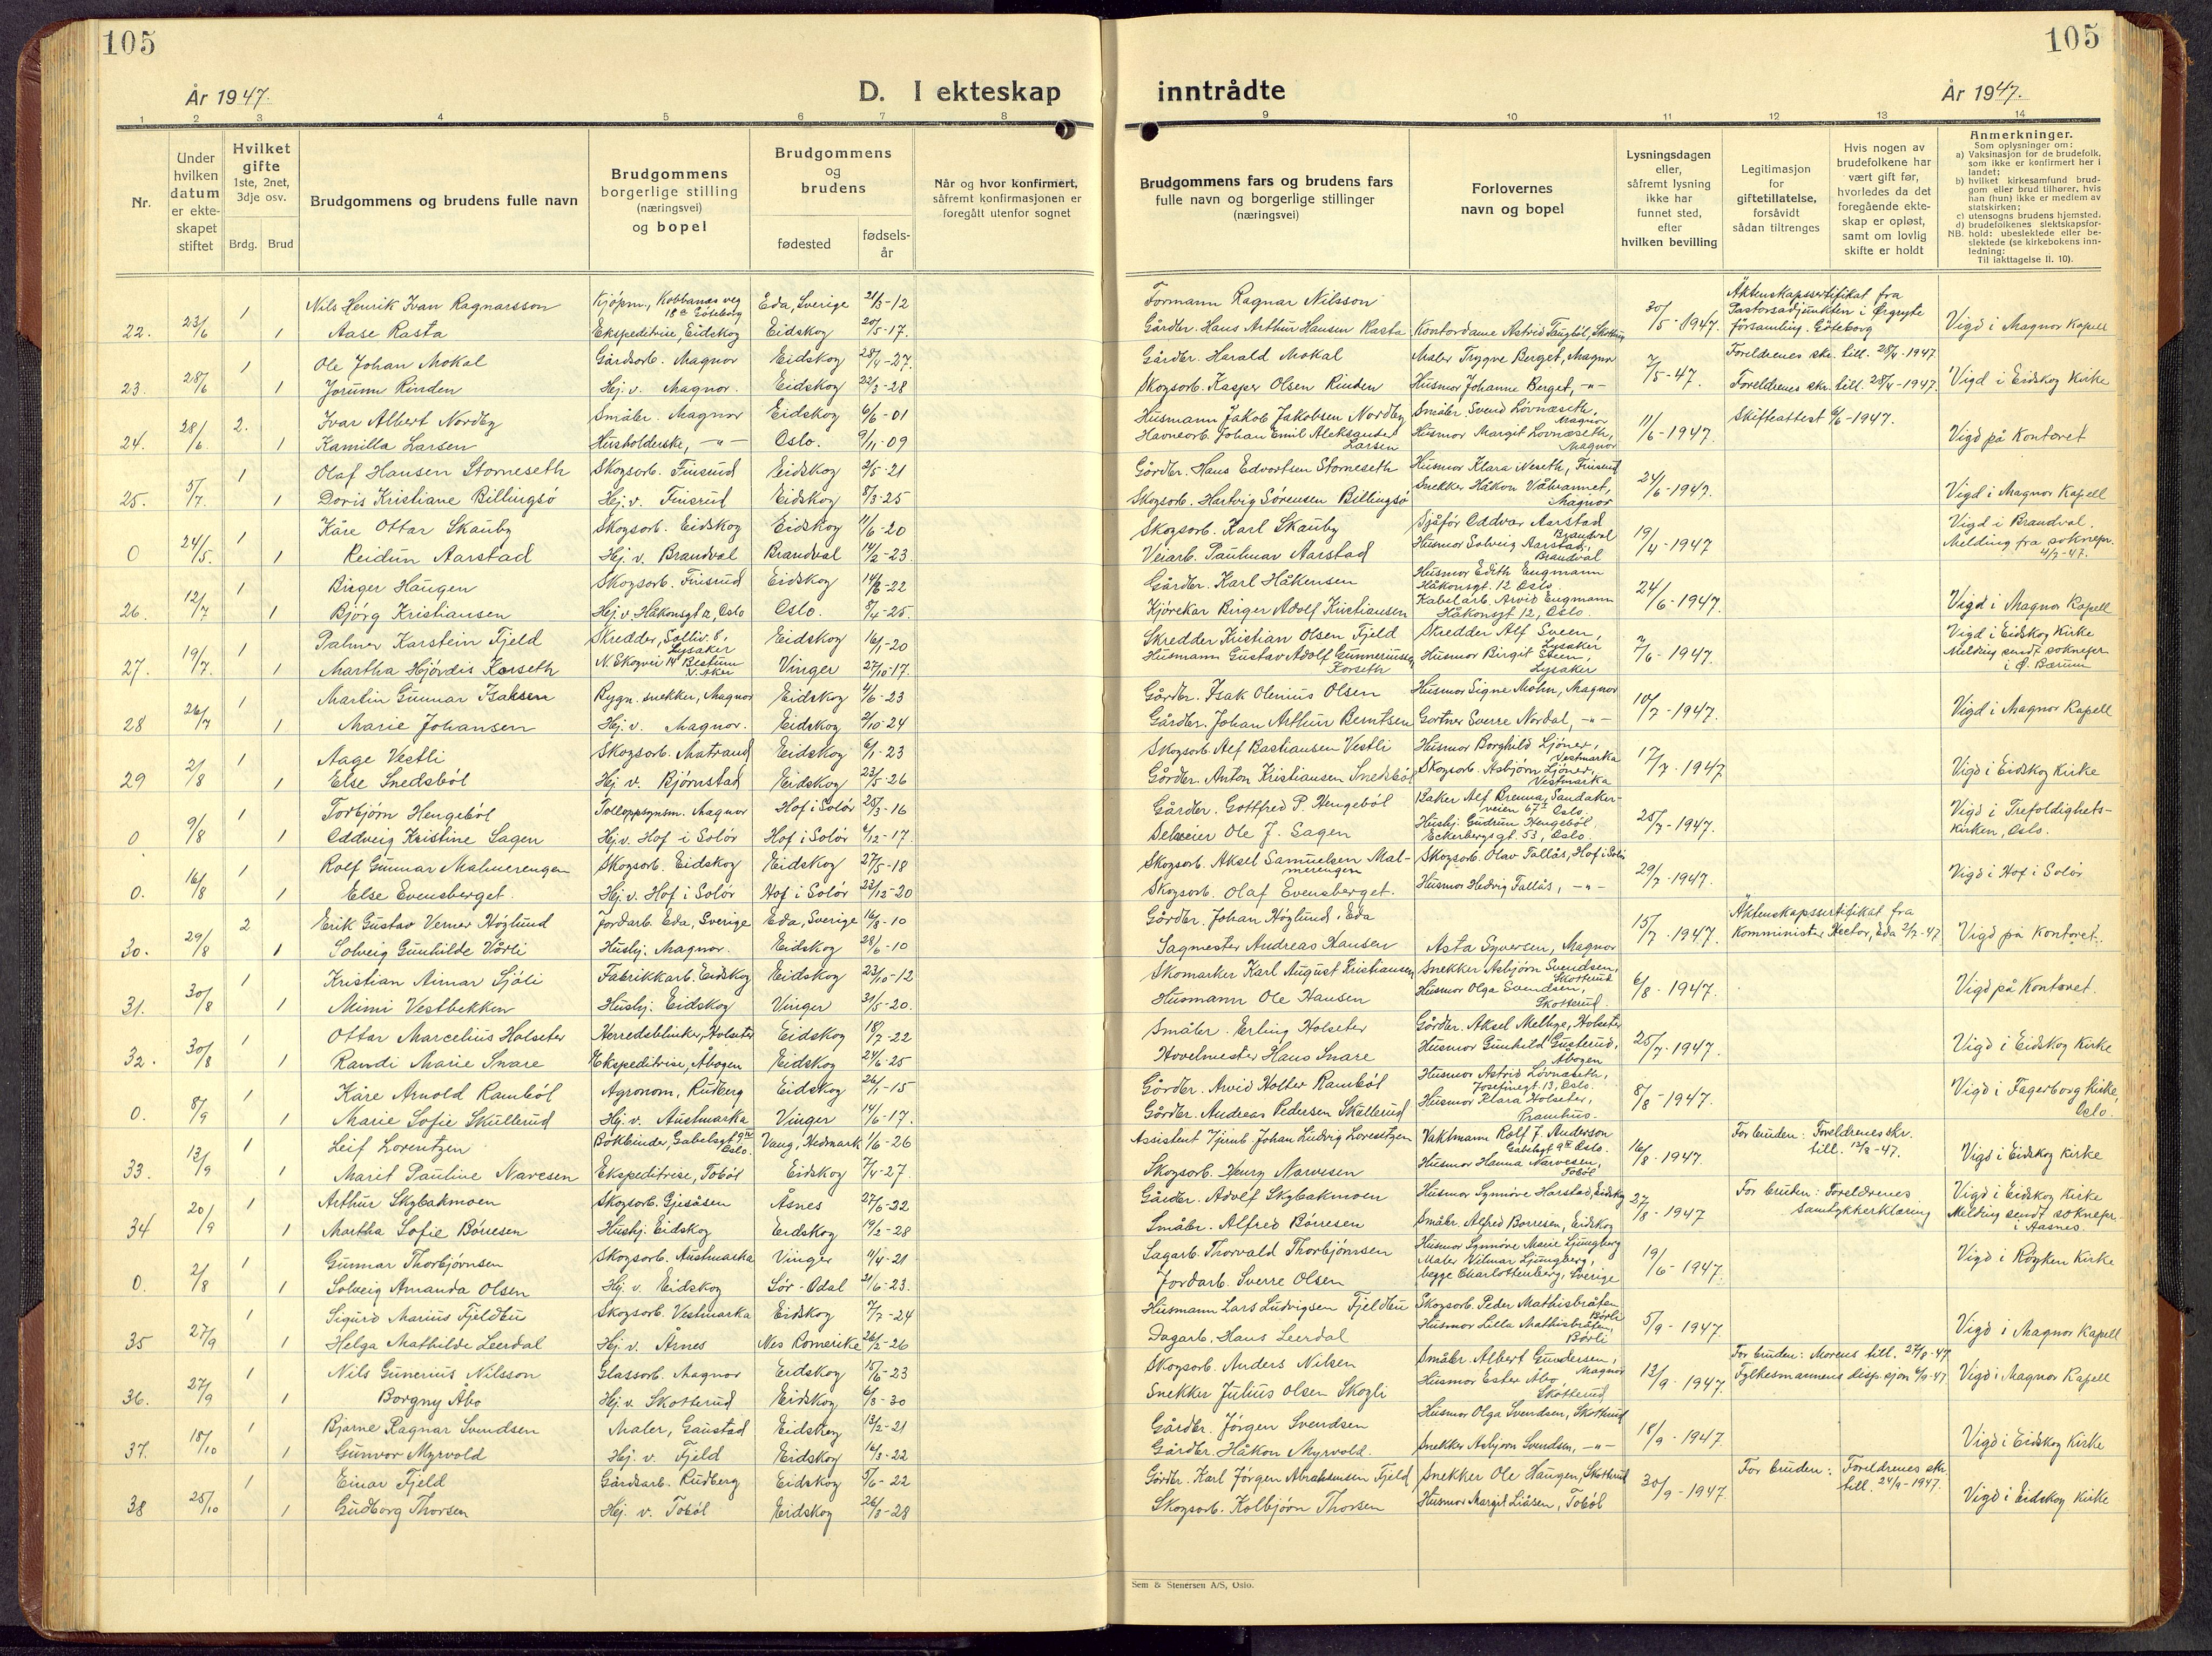 105
105
År 1947.
D. I ekteskap
inntrådte
År 1947.
1 2 3 4 5 6 7 8
9 10 11 12 13 14
Nr.
Under hvilken datum er ekteskapet stiftet
Hvilket gifte 1ste, 2net, 3dje osv.
Brdg. Brud
Brudgommens og brudens fulle navn
Brudgommens borgerlige stilling (næringsvei) og bopel
Brudgommens og brudens
fødested
fødselsår
Når og hvor konfirmert, såfremt konfirmasjonen er foregått utenfor sognet
Brudgommens fars og brudens fars fulle navn og borgerlige stillinger (næringsvei)
Forlovernes navn og bopel
Lysningsdagen eller, såfremt lysning ikke har funnet sted, efter hvilken bevilling
Legitimasjon for giftetillatelse, forsåvidt sådan tiltrenges
Hvis nogen av brudefolkene har vært gift før, hvorledes da det foregående ekteskap er opløst, samt om lovlig skifte er holdt
Anmerkninger.
Som oplysninger om:
a) Vaksinasjon for de brudefolk, som ikke er konfirmert her i landet;
b) hvilket kirkesamfund brudgom eller brud tilhører, hvis han (hun) ikke er medlem av statskirken;
c) utensogns brudens hjemsted.
d) brudefolkenes slektskapsforhold: ubeslektede eller beslektede (se kirkebokens innledning:
NB. Til iakttagelse II. 10).
22. 23/6 1 Nils Henrik Ivan Ragnarsson Kjöpm., Kobbarnas veg 18 c Göteborg Eda, Sverige 21/3-12 Formann Ragnar Nilsson 30/5-1947. Äktenskapssertifikat fra Pastorsadjunkten i Örgryte församling. Göteborg
1 Aase Rasta Ekspeditrise, Eidskog Eidskog 20/5-17. Gårdbr. Hans Arthur Hansen Rasta Kontordame Astrid Taugböl, Skotterud Vigd i Magnor Kapell
23. 28/6 1 Ole Johan Mokal Gårdsarb. Magnor Eidskog 28/4-27. Gårdbr. Harald Mokal Maler Trygve Berget, Magnor 7/5-47. Foreldrenes skr. till. 28/4-1947.
1 Jorunn Rinden Hj. v. Magnor. Eidskog 22/3-28 Skogsarb. Kasper Olsen Rinden Husmor Johanne Berget, -"- Foreldrenes skr. till. 28/4-1947. Vigd i Eidskog Kirke
24. 28/6 2. Ivar Albert Nordby Småbr. Magnor Eidskog 6/6-01 Husmann Jakob Jakobsen Nordby Småbr. Svend Lövnæseth, Magnor 11/6-1947. Skifteattest 6/6-1947.
1 Kamilla Larsen Husholderske, -"- Oslo. 9/11-09 Havnearb. Johan Emil Aleksander Larsen Husmor Margit Lövnæseth, Magnor Vigd på Kontoret
25. 5/7. 1 Olaf Hansen Storneseth Skogsarb. Finsrud Eidskog 3/5-21 Gårdbr. Hans Edvartsen Storneseth Husmor Klara Neseth, Finsrud 24/6-1947.
1 Doris Kristiane Billingsö Hj. v. Finsrud Eidskog 8/3-25 Skogsarb. Hartvig Sörensen Billingsö Snekker Håkon Våbrannet, Magnor Vigd i Magnor Kapell
0 24/5. 1 Kåre Ottar Skauby Skogsarb. Eidskog Eidskog 11/6-20 Skogsarb. Karl Skauby Sjåför Oddvar Aarstad Brandval 19/4-1947 Vigd i Brandval.
1 Reidun Aarstad Hj. v. Brandval Brandval 14/2-23. Veiarb. Paulmar Aarstad Husmor Solveig Aarstad, Brandval Melding fra soknepr. 4/7-47.
26. 12/7 1 Birger Haugen Skogsarb. Finsrud Eidskog 14/8-22 Gårdbr. Karl Håkensen Husmor Edith Engmann Håkonsgt. 12 Oslo 24/6-1947.
1 Bjørg Kristiansen Hj. v. Håkonsgt 12, Oslo Oslo. 8/4-25. Kjörekar Birger Adolf Kristiansen Kabelarb. Arvid Engmann Håkonsgt. 12, Oslo. Vigd i Magnor Kapell
27. 19/7. 1 Palmer Karstein Fjeld Skredder, Solliv. 8, Lysaker Eidskog 16/1-20 Skredder Kristian Olsen Fjeld Skredder Alf Sveen, Lysaker 7/6-1947. Vigd i Eidskog Kirke
1 Martha Hjördis Korseth N. Skogvei 14 Bestum V. Aker Vinger 27/10-17. Husmann Gustav Adolf Gunneriusen Korseth Husmor Birgit Steen, Lysaker Melding sendt soknepr i Ø. Bærum
28 26/7 1 Martin Gunnar Isaksen Bygn. snekker, Magnor Eidskog 4/6-23 Gårdbr. Isak Olenius Olsen Husmor Signe Mohn, Magnor 10/7-1947.
1 Marie Johansen Hj. v. Magnor. Eidskog 3/10-24 Gårdbr. Johan Arthur Berntsen Gartner Sverre Nordal, -"- Vigd i Magnor Kapell
29 2/8 1 Aage Vestli Skogsarb. Matrand Eidskog 6/1-23 Skogsarb. Alf Bastiansen Vestli Husmor Borghild Ljöner, Vestmarka 17/7-1947
1 Else Snedsböl Hj v. Bjørnstad Eidskog 23/5-26 Gårdbr. Anton Kristiansen Snedsböl Skogsarb. Asbjörn Ljöner, Vestmarka Vigd i Eidskog Kirke
0 9/8 1 Torbjörn Hengeböl Tolloppsynsm. Magnor Hof i Solör 25/3-16 Gårdbr. Gottfred P. Hengeböl Baker Alf Brenna, Sandakerveien 67 I Oslo. 25/7-1947. Vigd i Trefoldighets-
1 Oddveig Kristine Sagen Hj. v. Hof i Solör Hof i Solör 6/12-17. Deleeier Ole J. Sagen Hushj. Gudrun Hengeböl, Eckerbergsgt. 53, Oslo. kirken, Oslo.
0. 16/8 1 Rolf Gunnar Malmerengen Skogsarb. Eidskog Eidskog 27/5-18 Skogsarb. Aksel Samuelsen Malmerengen Skogsarb. Olav Tallås, Hof i Solör 29/7-1947.
1 Else Evensberget. Hj. v. Hof i Solör Hof i Solör 23/12-20 Skogsarb. Olaf Evensberget. Husmor Hedvig Tallås, -"- Vigd i Hof i Solör
30. 29/8 2 Erik Gustav Verner Höglund Jordarb. Eda, Sverige Eda, Sverige 16/8-10 Gårdbr. Johan Höglund, Eda 15/7-1947. Äktenskapssertifikat fra
1 Solveig Gunhilde Vårli Hushj. Magnor. Eidskog 28/6-10 Sagmester Andreas Hansen Asta Syversen, Magnor Komminister Hector, Eda 2/7-47 Vigd på Kontoret.
31. 30/8 1 Kristian Aimar Sjöli Fabrikkarb. Eidskog Eidskog 23/10-12 Skomarker Karl August Kristiansen Snekker Asbjørn Svendsen, Skotterud 6/8-1947.
1 Mimi Vestbekken Hushj. Eidskog Vinger 31/5-20. Husmann Ole Hansen Husmor Olga Svendsen, Skotterud. Vigd på Kontoret.
32. 30/8 1 Ottar Marcelius Holseter Herredsblinker, Holseter Eidskog 18/7-22 Småbr. Erling Holseter Gårdbr. Aksel Melbye, Holseter 25/7-1947.
1 Randi Marie Snare Ekspeditrise, Åbogen Eidskog 24/6-25 Hovelmester Hans Snare Husmor Gunhild Gusterud, Åbogen Vigd i Eidskog Kirke
0. 8/9 1 Kåre Arnold Ramböl Agronom, Rudberg Eidskog 26/1-15 Gårdbr. Arvid Holter Ramböl Husmor Astrid Lövnæseth, Josefinegt. 13, Oslo. 8/8-1947. Vigd i Fagerborg Kirke,
1 Marie Sofie Skullerud Hj. v. Austmarka Vinger 14/6-17. Gårdbr. Andreas Pedersen Skullerud Husmor Klara Holseter, Bramhus. Oslo.
33. 13/9 1 Leif Lorentzen Bokbinder, Gabelsgt 9 Oslo. Vang, Hedmark 1/6-26 Assistent v/jernb. Johan Ludvig Lorentzen Vaktmann Rolf J. Anderson Gabelsgt 9 Oslo. 16/8-1947. For bruden: Foreldrenes skr. till. 13/8-47.
1 Marit Pauline Narvesen Ekspeditrise, Toböl Eidskog 7/4-27. Skogsarb. Henry Narvesen Husmor Hanna Narvesen, Toböl Vigd i Eidskog Kirke
34 20/9 1 Arthur Skybakmoen Skogsarb. Gjesåsen Åsnes 27/6-22 Gårdbr. Adolf Skybakmoen Husmor Synnöve Harstad, Eidskog 27/8-1947 For bruden: Foreldrenes samtykkerklæring Vigd i Eidskog Kirke
1 Martha Sofie Börresen Hushj. Eidskog Eidskog 14/2-28 Småbr. Alfred Börresen Småbr. Alfred Borresen, Eidskog Melding sendt soknepr. i Aasnes.
0. 2/8 1 Gunnar Thorbjørnsen Skogsarb. Austmarka Vinger 11/4-21 Sagarb. Thorvald Thorbjørnsen Husmor Synnöve Marie Ljungberg 19/6-1947. Vigd i Röyken Kirke
1 Solveig Amanda Olsen Hj. v. Eidskog Sör-Odal 21/6-23. Jordarb. Sverre Olsen Maler Vilmar Ljungberg, begge Charlottenberg, Sverige
35 27/9 1 Sigurd Marius Fjeldbu Skogsarb. Vestmarka Eidskog 7/7-24 Husmann Lars Ludvigsen Fjeldbu Skogsarb. Peder Mathisbråten Börli 5/9-1947.
1 Helga Mathilde Leerdal Hj. v. Årnes Nes Romerike 26/2-26 Dagarb. Hans Leerdal Husmor Lilla Mathisbråten, Börli Vigd i Magnor Kapell
36. 27/9 1 Nils Gunerius Nilsson Glassarb. Magnor Eidskog 15/6-23 Skogsarb. Anders Nilsen Småbr. Albert Gundersen, Magnor 13/9-1947. For bruden: Morens till. 27/8-47
1 Borgny Åbo Hj. v. Skotterud Eidskog 6/3-30 Snekker Julius Olsen Skogli Husmor Ester Åbo, Skotterud Fylkesmannens disp.sjon 6/9-47 Vigd i Magnor Kapell
37. 18/10 1 Bjarne Ragnar Svendsen Maler, Gaustad Eidskog 13/2-21 Gårdbr. Jörgen Svendsen Husmor Olga Svendsen, Skotterud 18/9-1947.
1 Gunvor Myrvold Hj. v. Fjeld Eidskog 16/3-22 Gårdbr. Håkon Myrvold. Snekker Asbjørn Svendsen, -"- Vigd i Eidskog Kirke
38 25/10 1 Einar Fjeld Gårdsarb. Rudberg Eidskog 5/6-22 Gårdbr. Karl Jörgen Abrahamsen Fjeld Snekker Ole Haugen, Skotterud 30/9-1947. For bruden: Foreldrenes skr. till. 24/9-1947.
1 Gudborg Thorsen Hj. v. Toböl Eidskog 26/3-28 Skogsarb. Kolbjørn Thorsen Husmor Margit Liåsen, Toböl Vigd i Eidskog Kirke
Sem & Stenersen A/S, Oslo.